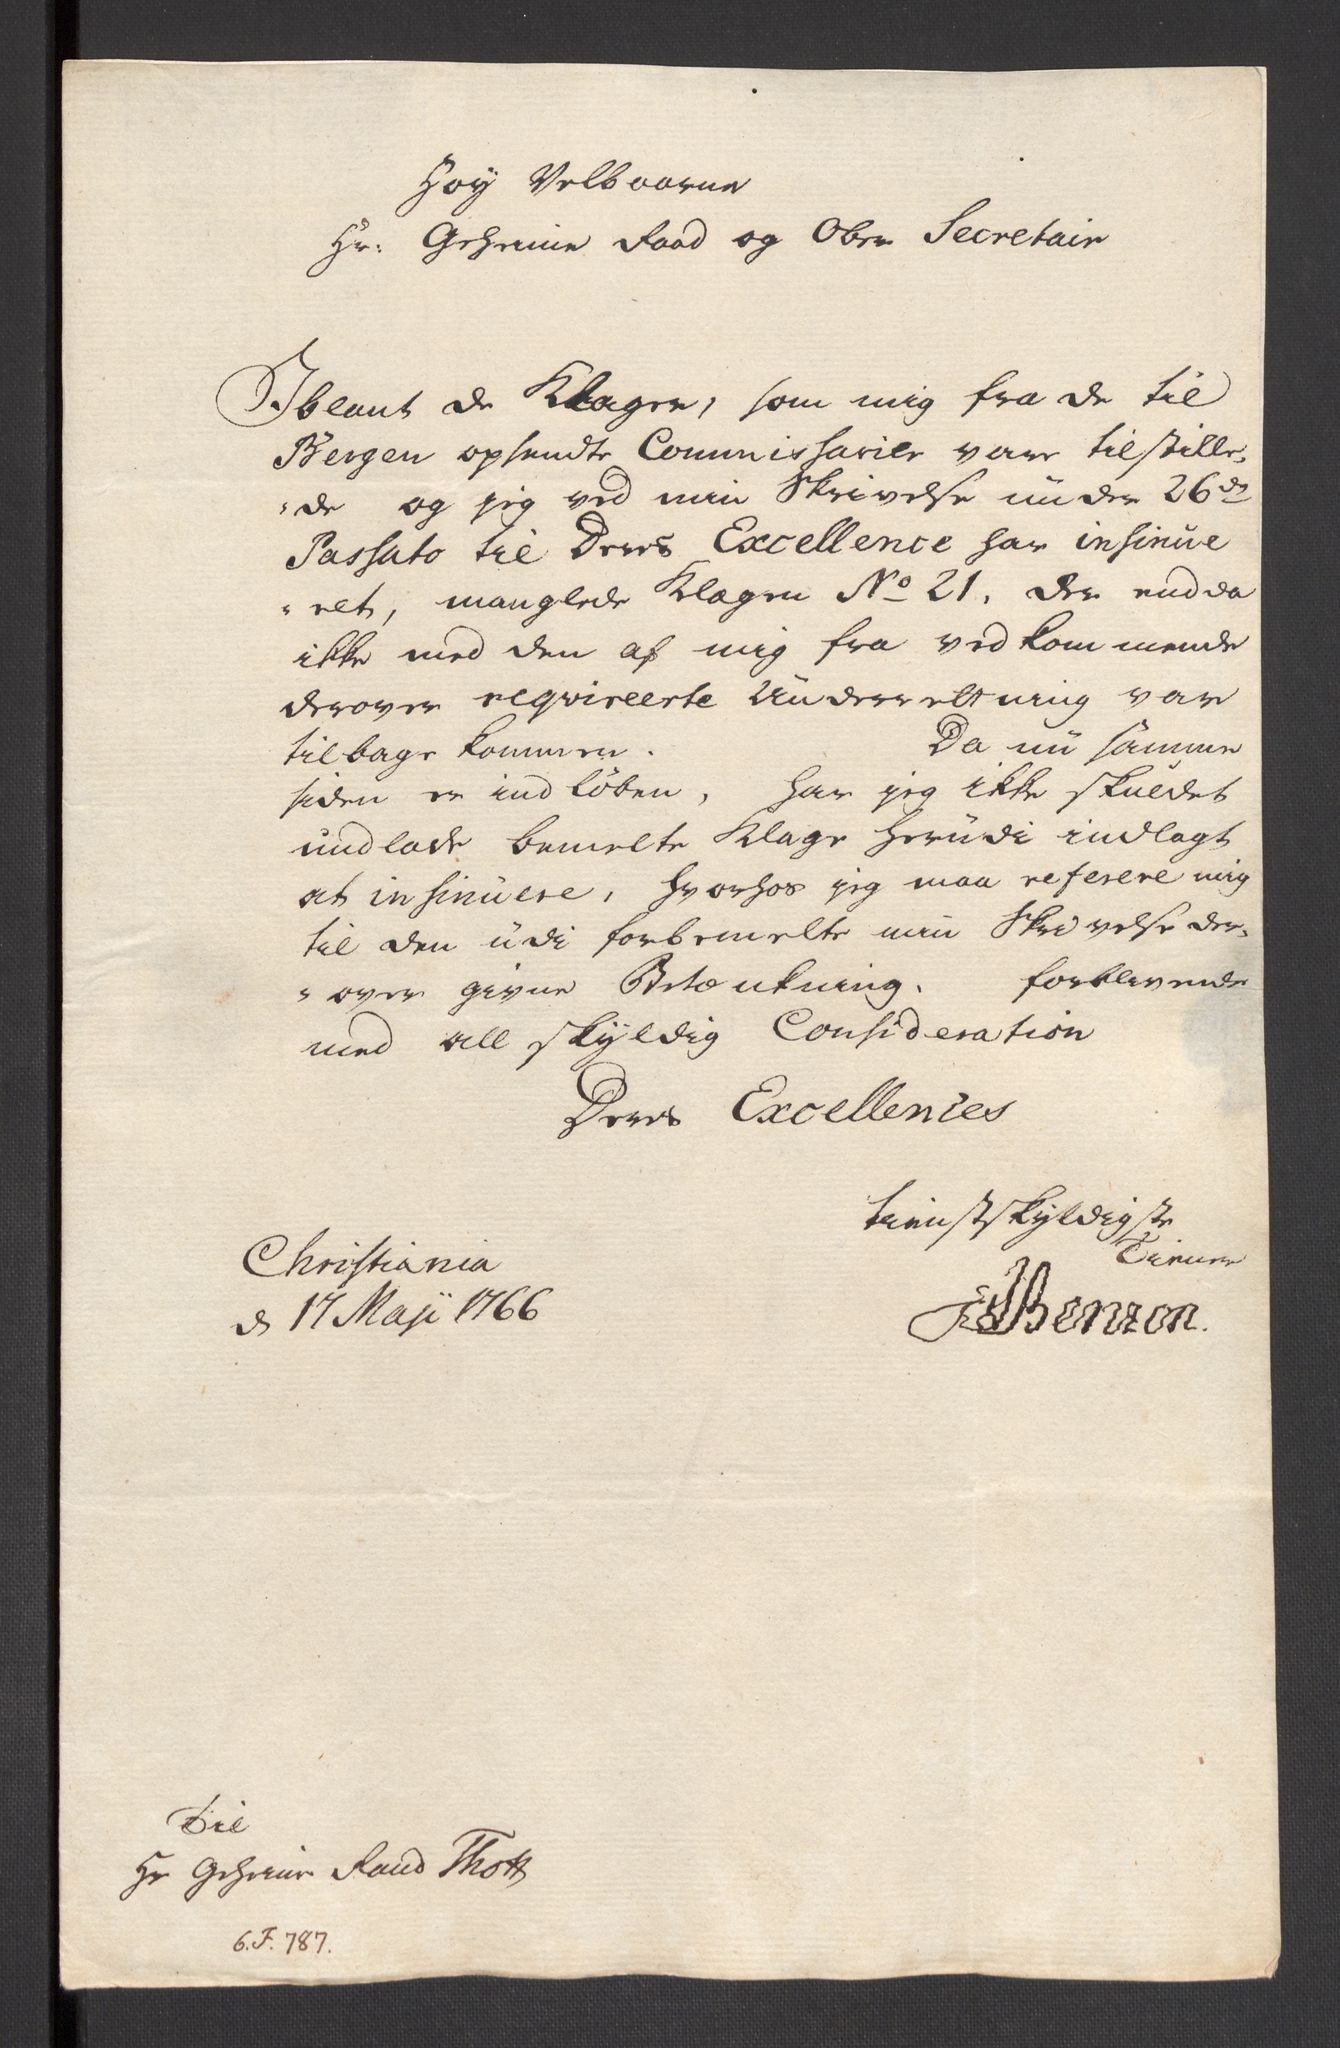 Høy Velbaarne
Hr: Geheime Raad og Ober Secretair
Iblant de Klager, som mig fra de til
Bergen opsendte Commissarier vare tilstille-
-de og jeg ved min Skrivelse under 26de
Passato til Deres Excellence har insinue
-ret, manglede Klagen No 21, der endda
ikke med den af mig fra vedkommende
derover reqvireerte Underretning var
tilbage kommen. Da nu samme
siden er indløben, har jeg ikke skuldet
undlade bemelte Klage herudi indlagt
at insinuere, hvorhos jeg maa referere mig
til den udi forbemelte min Skrivelse der-
-over givne Betænkning. forblivende
med all skyldig Consideration
Deres Excellences
tienstskyldigste
Tiener
Benzon.
Christiania
d 17 Maji 1766
Til
Hr Geheime Raad Thott
6.F. 787.